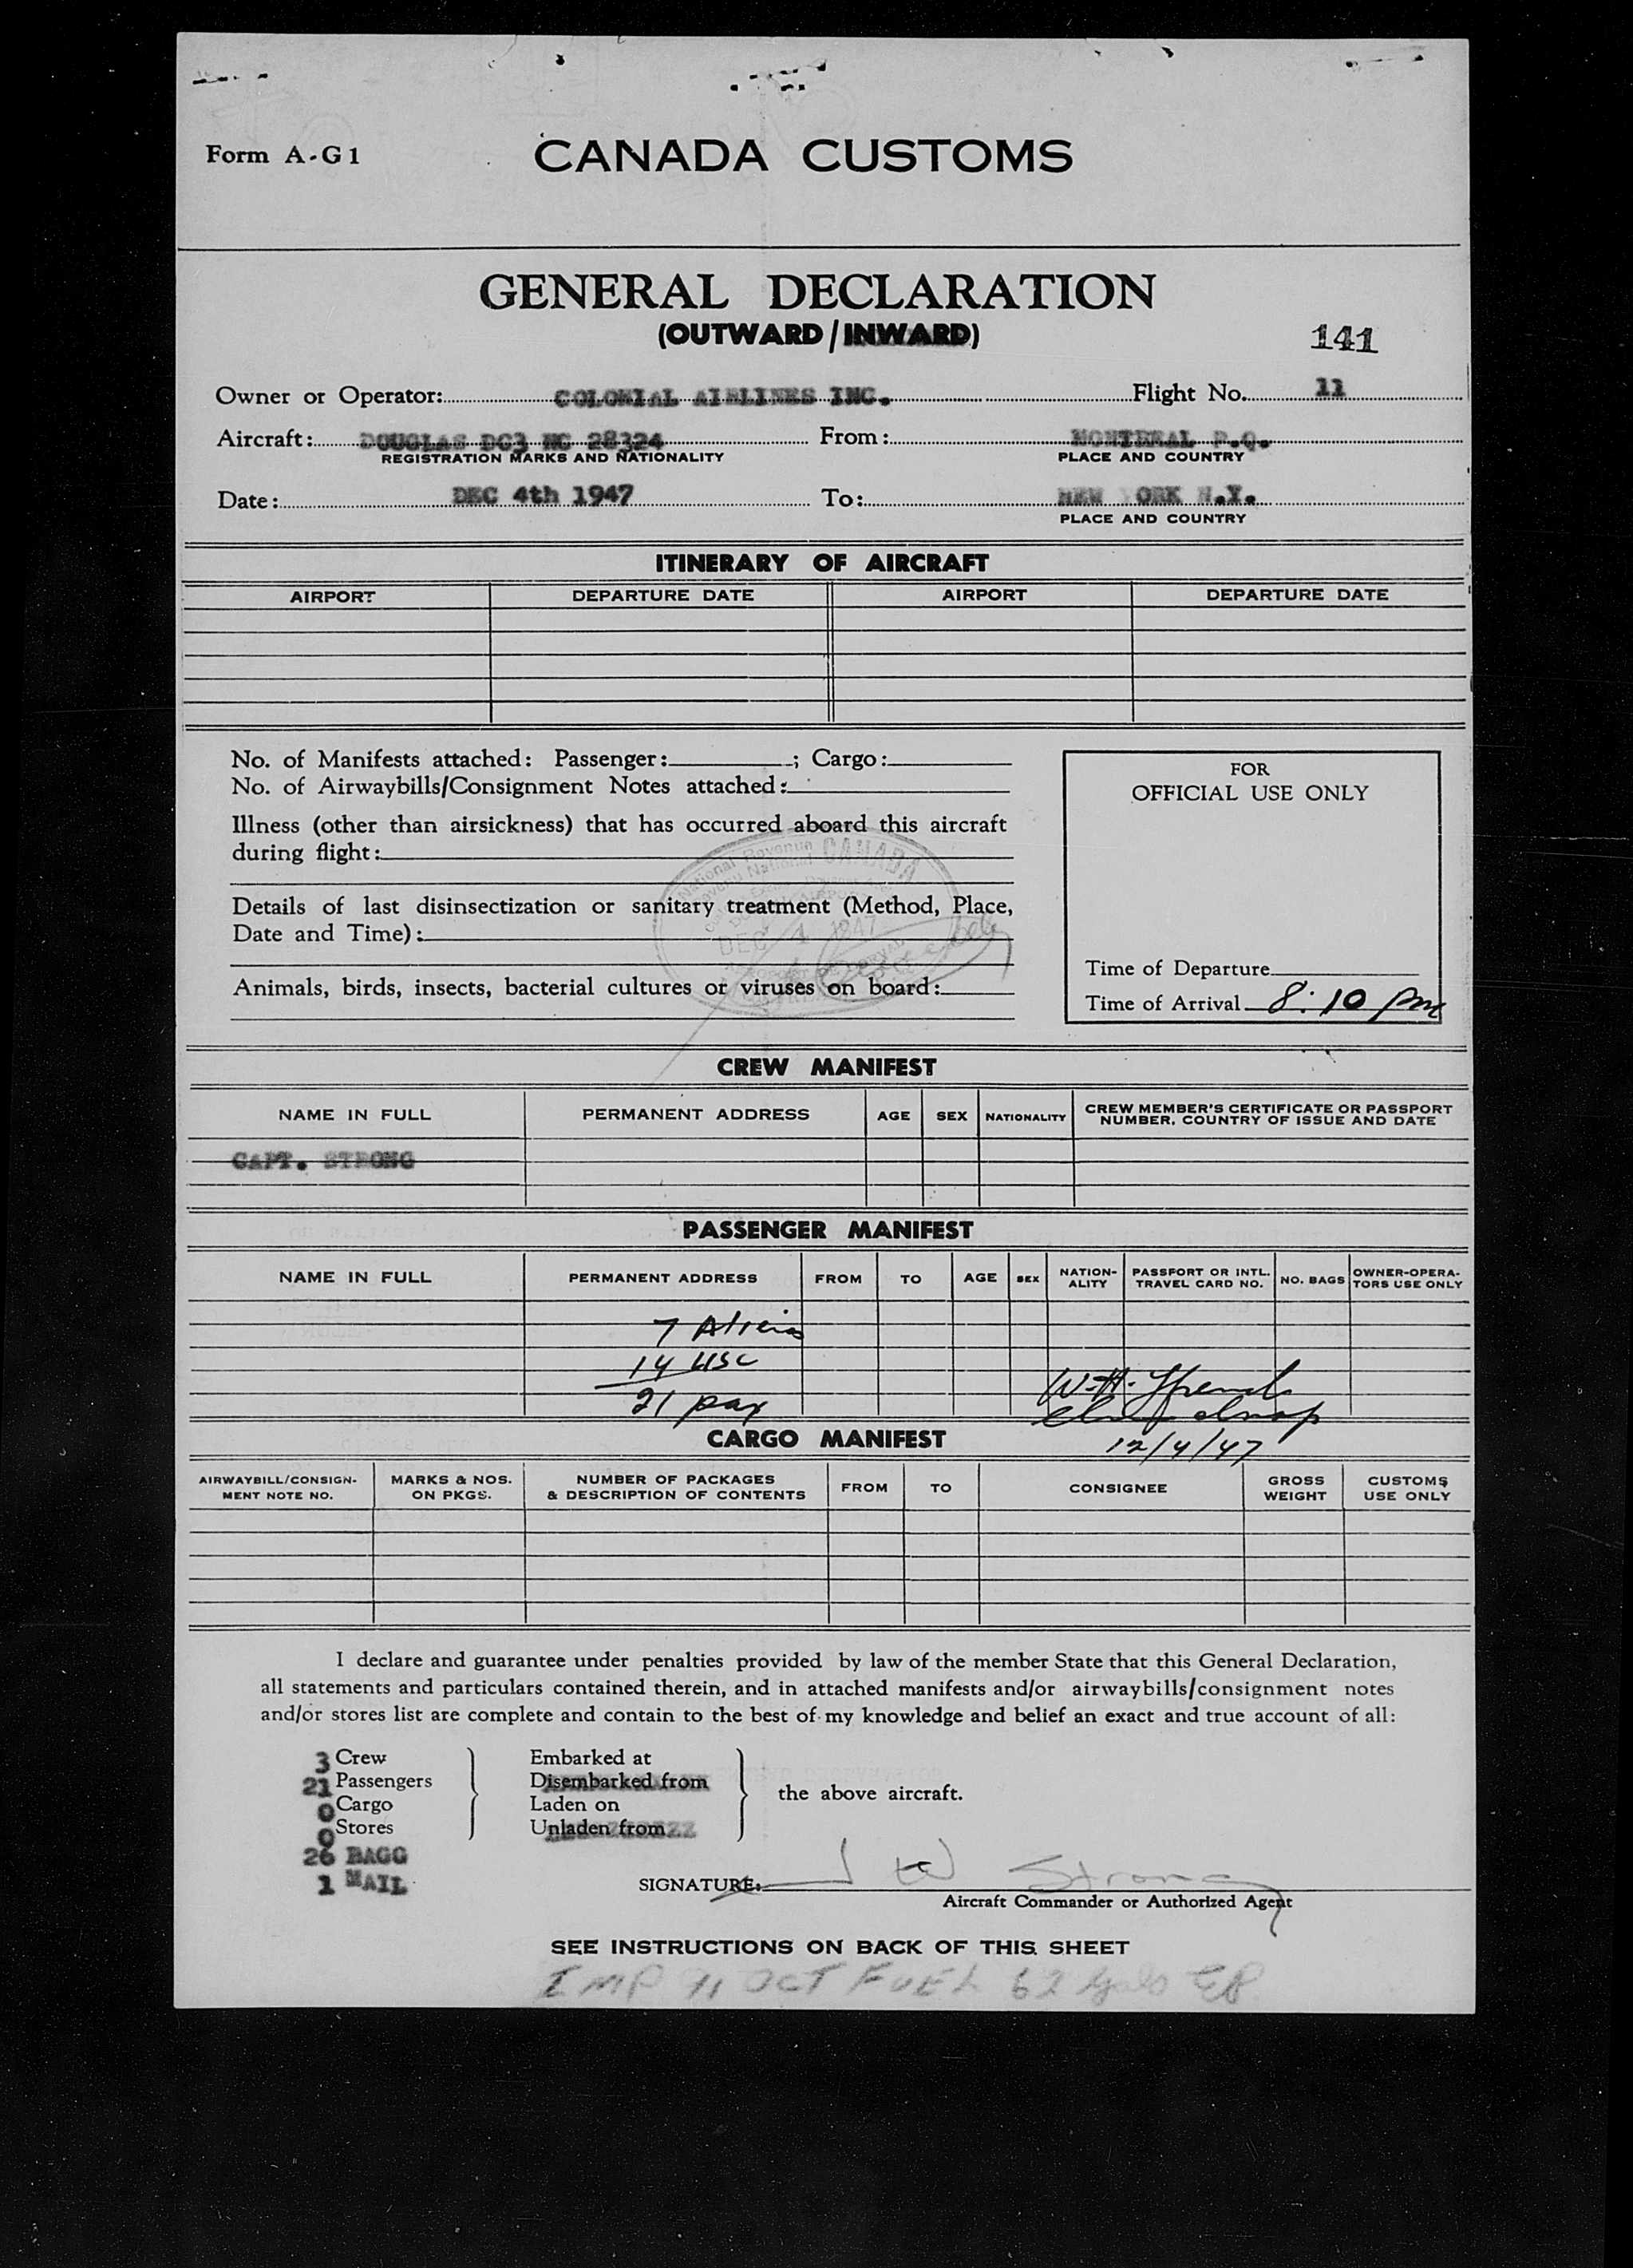 Form A-G1
CANADA CUSTOMS
GENERAL DECLARATION
(OUTWARD/INWARD)
141
Owner or Operator: COLONIAL AIRLINES INC. Flight No. 11
Aircraft: DOUGLAS DC3 NC 28324 From: MONTREAL P.Q.
REGISTRATION MARKS AND NATIONALITY PLACE AND COUNTRY
Date: DEC 4th 1947 To: NEW YORK N.Y.
PLACE AND COUNTRY
ITINERARY OF AIRCRAFT
AIRPORT DEPARTURE DATE AIRPORT DEPARTURE DATE
No. of Manifests attached: Passenger: ; Cargo:
No. of Airwaybills/Consignment Notes attached:
Illness (other than airsickness) that has occurred aboard this aircraft
during flight:
Details of last disinsectization or sanitary treatment (Method, Place,
Date and Time):
Animals, birds, insects, bacterial cultures or viruses on board:
National Revenue CANADA
Revenu National
DEC 4 1947
FOR
OFFICIAL USE ONLY
Time of Departure
Time of Arrival 8:10 pm
CREW MANIFEST
NAME IN FULL PERMANENT ADDRESS AGE SEX NATIONALITY CREW MEMBER'S CERTIFICATE OR PASSPORT
NUMBER, COUNTRY OF ISSUE AND DATE
CAPT. STRONG
PASSENGER MANIFEST
NAME IN FULL PERMANENT ADDRESS FROM TO AGE SEX NATION-
ALITY PASSPORT OR INTL.
TRAVEL CARD NO. NO. BAGS OWNER-OPERA-
TORS USE ONLY
7 Aliens
14 USC
21 pax
W. H.
12/4/47
CARGO MANIFEST
AIRWAYBILL/CONSIGN-
MENT NOTE NO. MARKS & NOS.
ON PKGS. NUMBER OF PACKAGES
& DESCRIPTION OF CONTENTS FROM TO CONSIGNEE GROSS
WEIGHT CUSTOMS
USE ONLY
I declare and guarantee under penalties provided by law of the member State that this General Declaration,
all statements and particulars contained therein, and in attached manifests and/or airwaybills/consignment notes
and/or stores list are complete and contain to the best of my knowledge and belief an exact and true account of all:
3 Crew Embarked at
21 Passengers Disembarked from
0 Cargo Laden on
0 Stores Unladen from
the above aircraft.
26 BAGG
1 MAIL
SIGNATURE: J W Strong
Aircraft Commander or Authorized Agent
SEE INSTRUCTIONS ON BACK OF THIS SHEET
IMP 91 OCT FUEL 62 gals